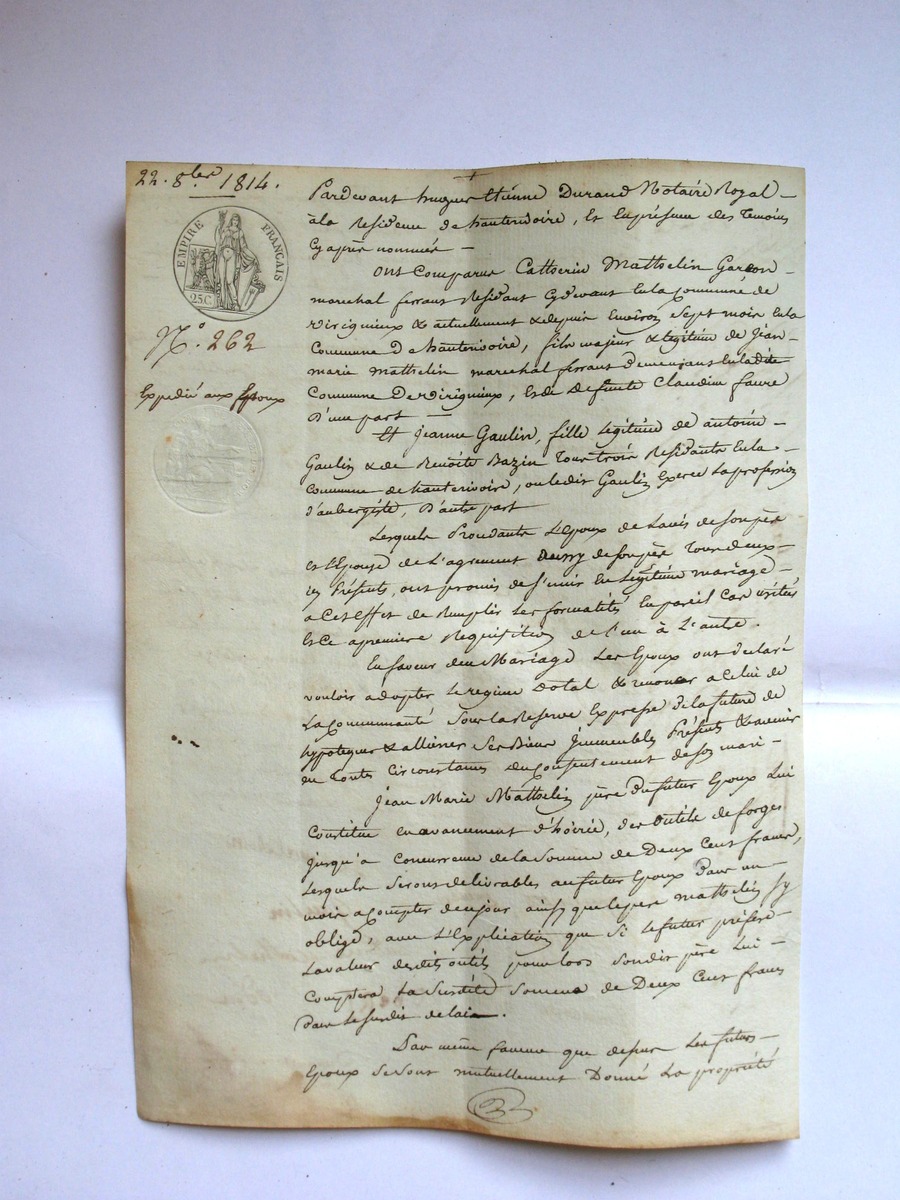 22. 8.bre 1814.
EMPIRE FRANÇAIS
25C
N.o 262
Expedié aux Epoux
Pardevant hugues Etienne Durand Notaire Royal
à la Residence de hauterivoire, Et En présence des temoins
Cy après nommés
Ont Comparus Catherin Mathelin Garcon
marechal ferrant Residant Cydevant En la Communé de
virignieux & actuellement & depuis Environ Sept mois En la
Commune D'hauterivoire, fils majeur & legitime de Jean
marie Mathelin marechal ferrant demeurant En la dite
Commune De virignieux, & de defunte Claudine faure
D'une part
Et Jeanne Gaulin, fille Legitime de antoine
Gaulin & de Benoite Bazin Tous trois Residants En la
Commune de hauterivoire, ou le dit Gaulin Exerce La profession
d'aubergiste, D'autre part
Lesquels Procedants L'Epoux de L'avis de son père
et l'Epouse de L'agrement de son père Tous deux
icy Présents, ont promis de S'unir En Légitime mariage
a Cet Effet de Remplir Les formalités En pareil Cas usités
Et Ce a premiere Requisition de L'un à L'autre.
En faveur du Mariage Les Epoux ont declaré
vouloir adopter Le regime Dotal & renoncer a Celui de
La Communauté Sous La Reserve Expresse de la future de
hypotequer & alliener Ses Biens Immeubles Présents & avenir
en Toutes Circonstances du Consentement de son mari
Jean Marie Mathelin père du futur Epoux Lui
Constitue en avancement d'hoirie, des outils de forges
jusqu'a Concurrence de la Somme de Deux Cent francs,
Lesquels Seront delivrables au futur Epoux Dans un
mois a Compter de ce jour ainsy que le père mathelin Sy
oblige, avec L'Explication que Si Le futur préfere
La valeur desdits outils pour lors Son dit père Lui
Comptera La Susdite Somme de Deux Cent francs
Dans Le Susdit delai.
Par même faveur que dessus Les futurs
Epoux Se Sont mutuellement Donné La propriété